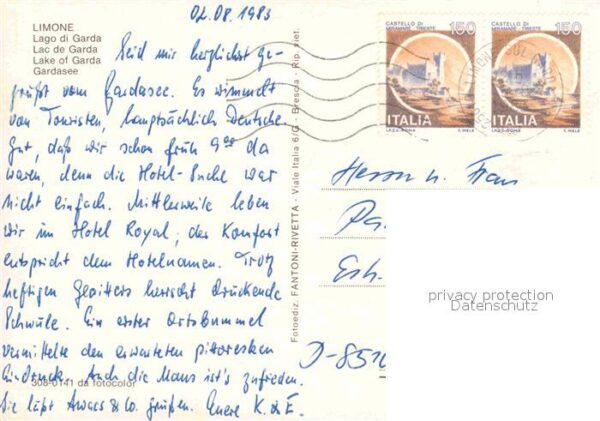 02.08.1983
LIMONE
Lago di Garda
Lac de Garda
Lake of Garda
Gardasee
Seid mir herzlichst ge-
grüßt vom Gardasee. Es wimmelt
von Touristen, hauptsächlich Deutsche.
Gut, daß wir schon früh 9⁰⁰ da
waren, denn die Hotel-Suche war
nicht einfach. Mittlerweile leben
wir im Hotel Royal; der Komfort
entspricht dem Hotelnamen. Trotz
heftigen Gewitters herrscht drückende
Schwüle. Ein erster Ortsbummel
vermittelte den erwarteten pittoresken
Eindruck. Auch die Maus ist's zufrieden.
Sie läßt & Co. grüßen. Euere K. & E.
308-0141 da fotocolor
Fotoediz. FANTONI-RIVETTA - Viale Italia 6/G - Brescia - Rip. viet.
CASTELLO DI
MIRAMARE - TRIESTE
150
ITALIA
CASTELLO DI
MIRAMARE - TRIESTE
150
ITALIA
Herrn u. Frau
Pa
Esch
D-851
privacy protection
Datenschutz